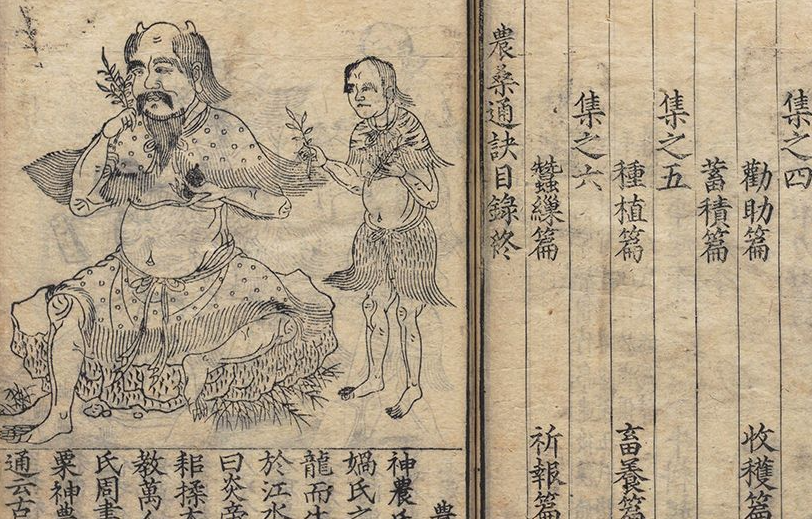 集之四
勸助篇 收穫篇
蓄積篇
集之五
種植篇 畜養篇
集之六
蠶繅篇 祈報篇
農桑通訣目錄終
神農氏
媧氏之
龍而生
於江水
曰炎帝
耜揉木
教萬人
氏周書
粟神農
通云古